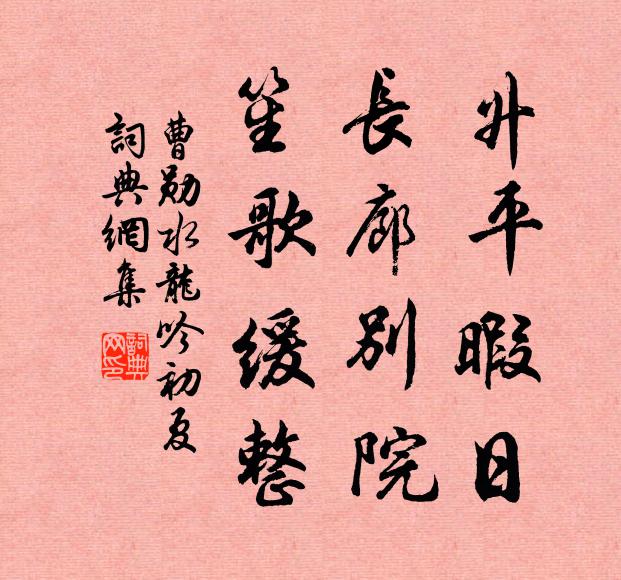 升平暇日
長廊別院
笙歌緩整
曹勛水龍吟初夏
詞典網集
詞典网印